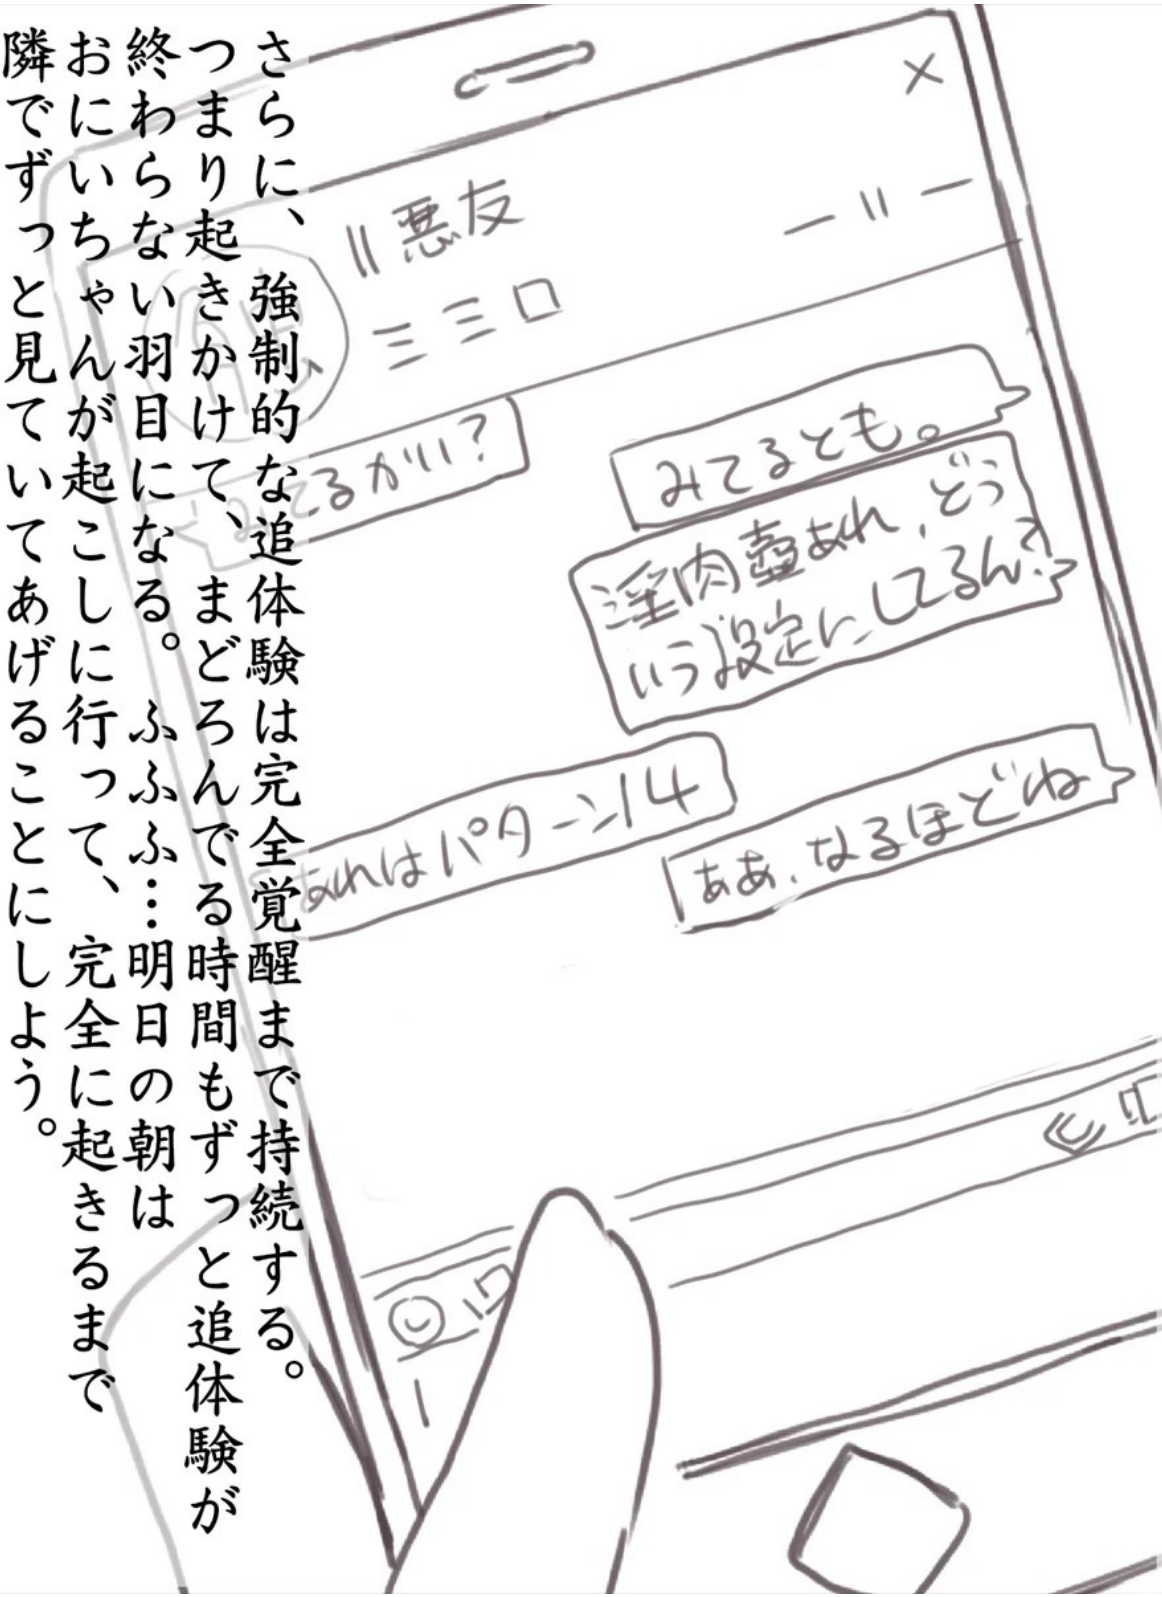 さらに、強制的な追体験は完全覚醒まで持続する。
つまり起きかけて、まどろんでる時間もずっと追体験が
終わらない羽目になる。ふふふ…明日の朝は
おにいちゃんが起こしに行って、完全に起きるまで
隣でずっと見ていてあげることにしよう。
悪友
みてるかい?
みてるとも。
淫肉壺あれ、どう
いう設定にしてるん?
あれはパターン14
ああ、なるほどね